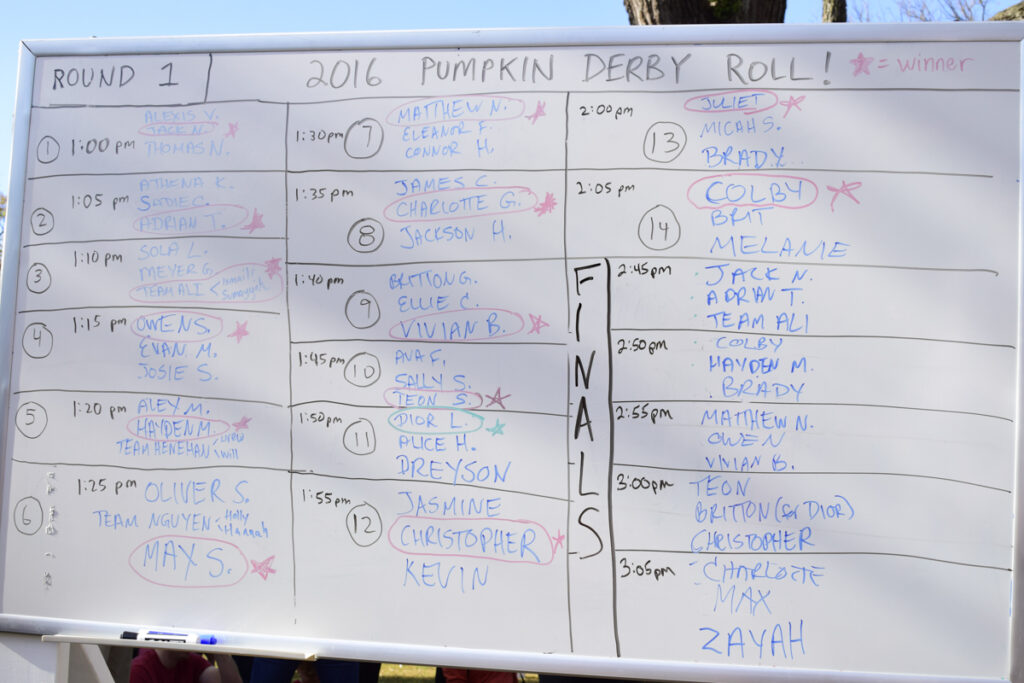 ROUND 1
2016 PUMPKIN DERBY ROLL!
= winner
1
1:00 pm
ALEXIS V.
JACK N.
THOMAS N.
2
1:05 pm
ATHENA K.
SADIE C.
ADRIAN T.
3
1:10 pm
SOLA L.
MEYER G.
TEAM ALI < Ismail
Sumayyah
4
1:15 pm
OWEN S.
EVAN M.
JOSIE S.
5
1:20 pm
ALEX M.
HAYDEN M.
TEAM HENEHAN
will
6
1:25 pm
OLIVER S.
TEAM NGUYEN < Holly
Hannah
MAX S.
1:30pm
7
MATTHEW N.
ELEANOR F.
CONNOR H.
1:35 pm
8
JAMES C.
CHARLOTTE G.
JACKSON H.
1:40 pm
9
BRITTON G.
ELLIE C.
VIVIAN B.
1:45pm
10
ANA F.
SALLY S.
TEON S.
1:50pm
11
DIOR L.
ALICE H.
DREYSON
1:55pm
12
JASMINE
CHRISTOPHER
KEVIN
2:00pm
13
JULIET
MICAH S.
BRADY
2:05 pm
14
COLBY
BRIT
MELANIE
FINALS
2:45pm
JACK N.
ADRIAN T.
TEAM ALI
2:50pm
COLBY
HAYDEN M.
BRADY
2:55pm
MATTHEW N.
OWEN
VIVIAN B.
3:00pm
TEON
BRITTON (for DIOR)
CHRISTOPHER
3:05pm
CHARLOTTE
MAX
ZAYAH